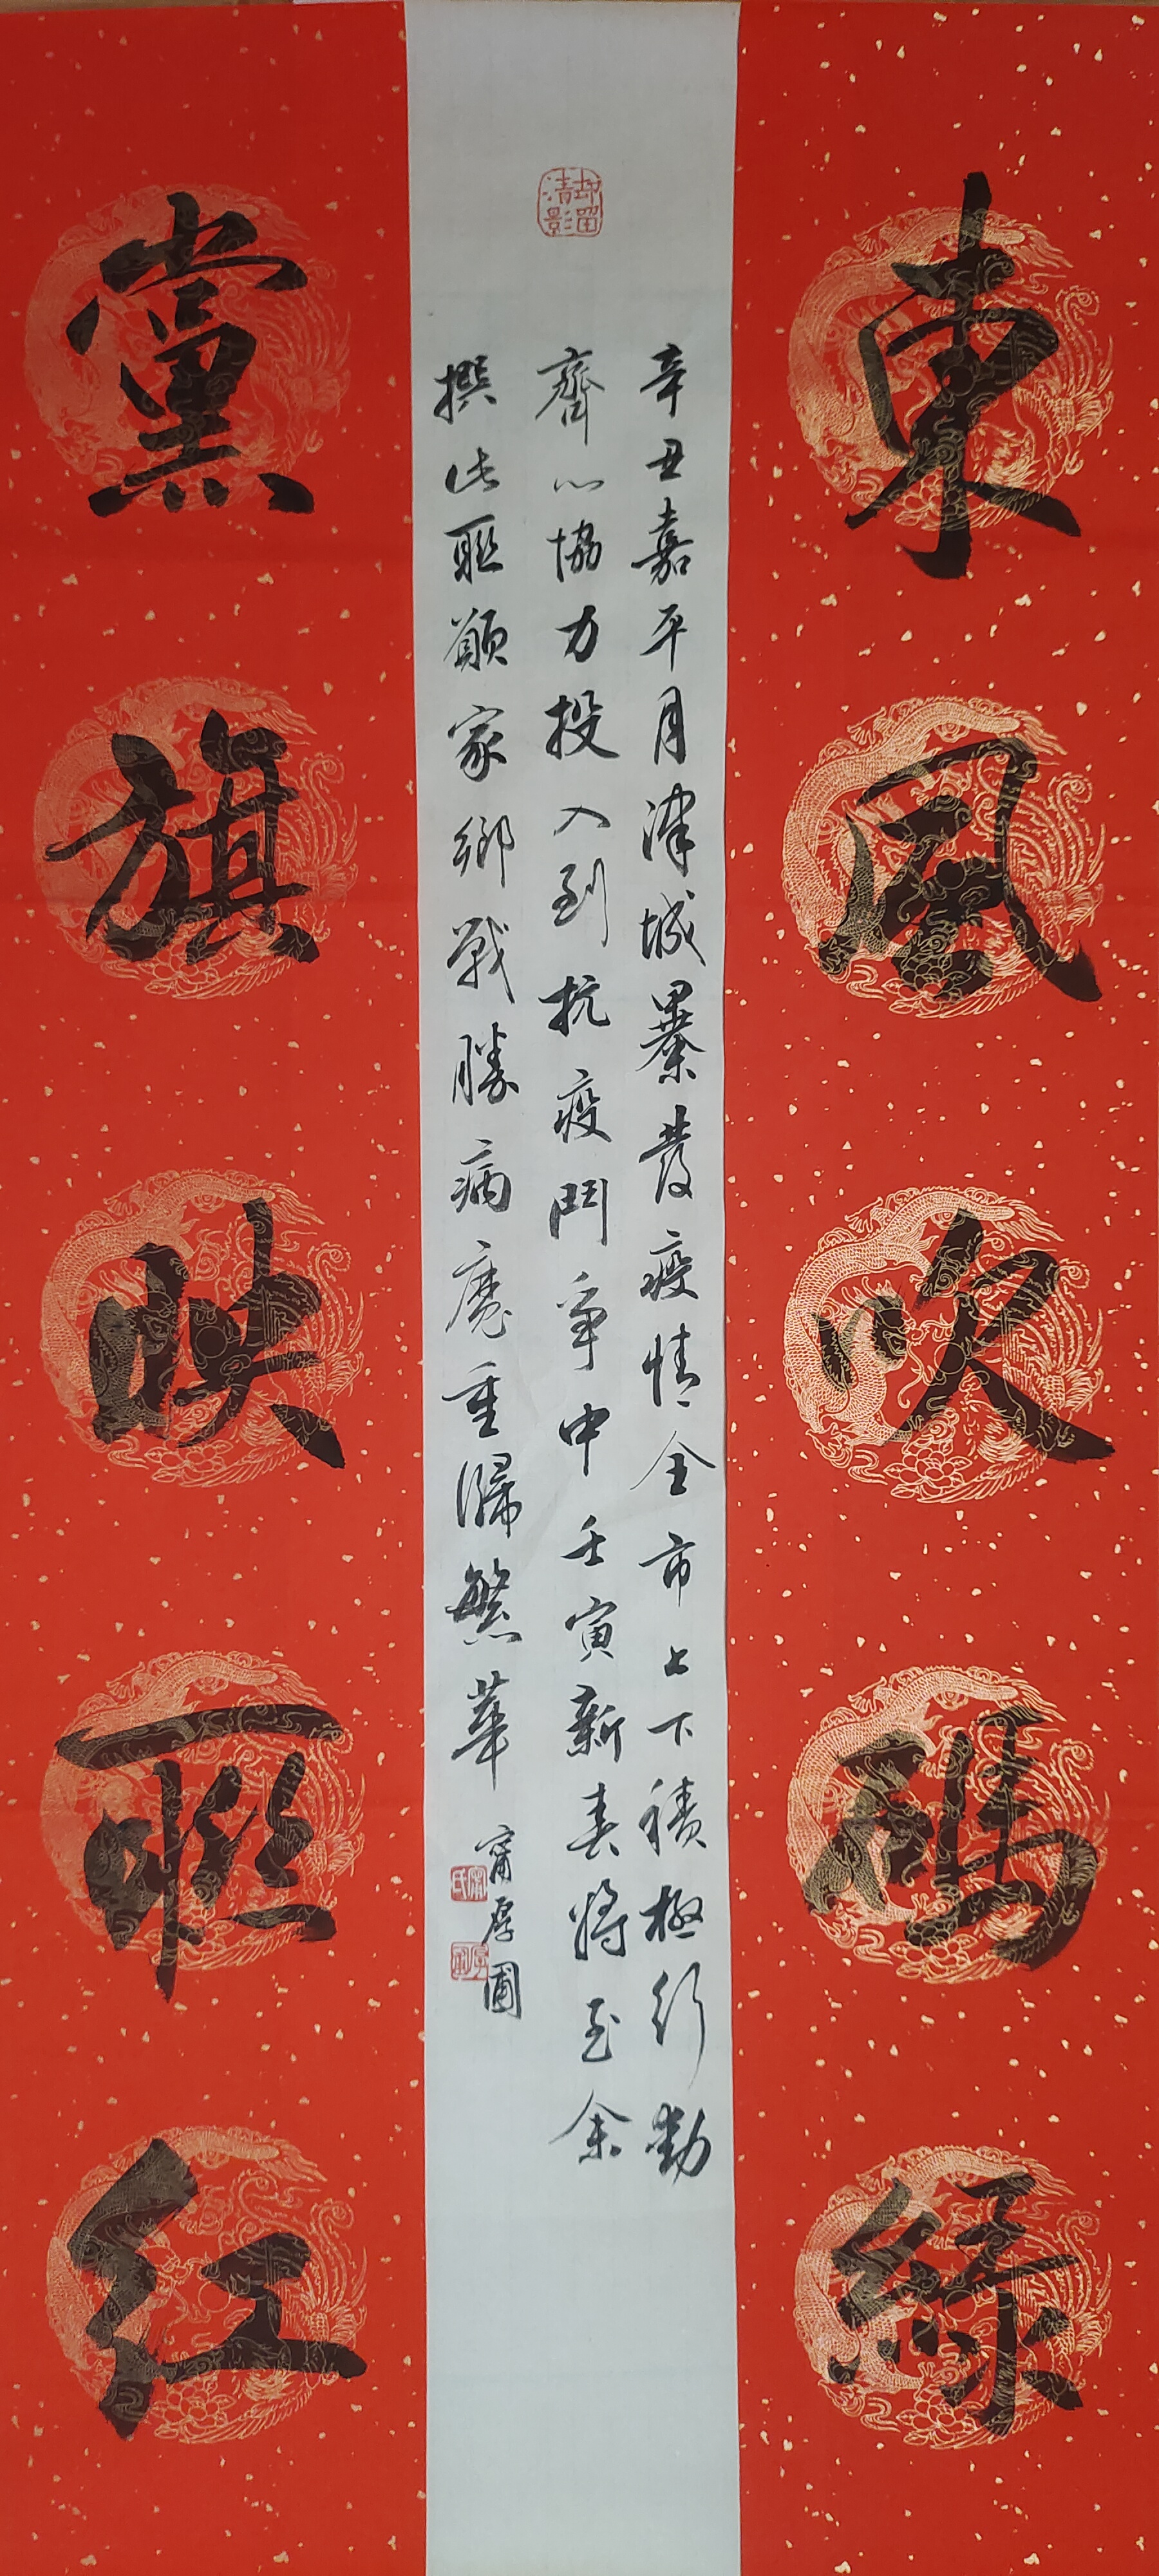 東風吹碼綠
辛丑嘉平月津城暴發疫情全市上下積極行動
齊心協力投入到抗疫鬥爭中壬寅新春將至余
撰此聯願家鄉戰勝病魔重歸繁華
甯厚圃
黨旗映聯紅
却留清影